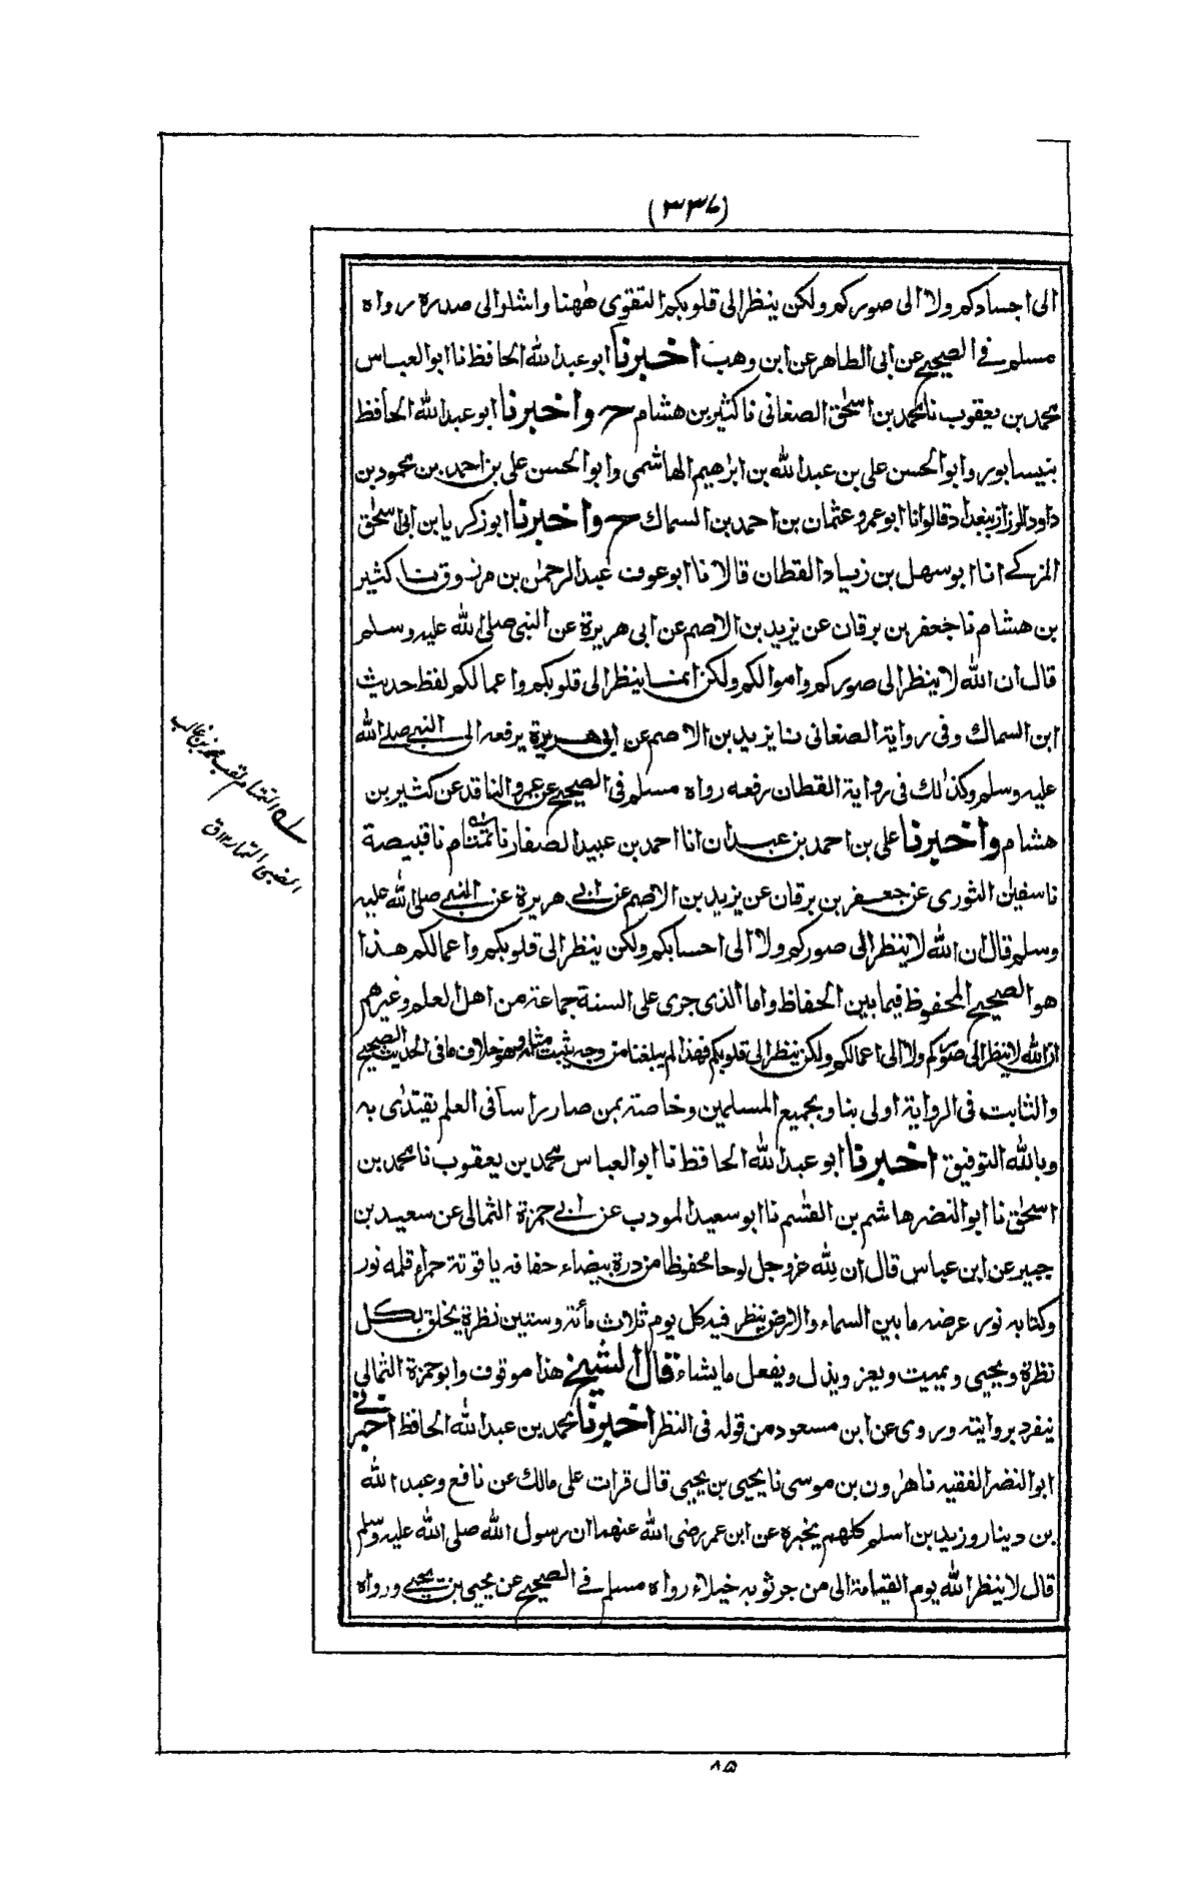 (٣٣٧)
الى اجسادكم ولا الى صوركم ولكن ينظر الى قلوبكم التقوى ههنا واشار الى صدره رواه
مسلم في الصحيح عن ابى الطاهر عن ابن وهب اخبرنا ابو عبد الله الحافظ نا ابو العباس
محمد بن يعقوب نا محمد بن اسحق الصغانى نا كثير بن هشام ح واخبرنا ابو عبد الله الحافظ
بنيسابور وابو الحسن على بن عبد الله بن ابراهيم الهاشمى وابو الحسن على بن احمد بن محمود بن
داود الرزاز ببغداد قالوا نا ابو عمرو عثمان بن احمد بن السماك ح واخبرنا ابو زكريا بن ابى اسحق
المزكے انا ابو سهل بن زياد القطان قالا نا ابو عوف عبد الرحمن بن مرزوق نا كثير
بن هشام نا جعفر بن برقان عن يزيد بن الاصم عن ابى هريرة عن النبى صلى الله عليه وسلم
قال ان الله لا ينظر الى صوركم واموالكم ولكن انما ينظر الى قلوبكم واعمالكم لفظ حديث
ابن السماك وفى رواية الصغانى نا يزيد بن الاصم عن ابى هريرة يرفعه الى النبى صلى الله
عليه وسلم وكذلك فى رواية القطان رفعه رواه مسلم فى الصحيح عن عمرو الناقد عن كثير بن
هشام واخبرنا على بن احمد بن عبدان انا احمد بن عبيد الصفار نا تمتام نا قبيصة
نا سفين الثورى عن جعفر بن برقان عن يزيد بن الاصم عن ابى هريرة عن النبى صلى الله عليه
وسلم قال ان الله لا ينظر الى صوركم ولا الى احسابكم ولكن ينظر الى قلوبكم واعمالكم هذا
هو الصحيح المحفوظ فيما بين الحفاظ واما الذى جرى على السنة جماعة من اهل العلم وغيرهم
ان الله لا ينظر الى صوركم ولا الى اعمالكم ولكن ينظر الى قلوبكم فهذا لم يبلغنا من وجه يثبت مثله وهو خلاف ما فى الحديث الصحيح
والثابت فى الرواية اولى بنا وبجميع المسلمين وخاصة بمن صار رأسا فى العلم يقتدى به
وبالله التوفيق اخبرنا ابو عبد الله الحافظ نا ابو العباس محمد بن يعقوب نا محمد بن
اسحق نا ابو النضر هاشم بن القسم نا ابو سعيد المودب عن ابى حمزة الثمالى عن سعيد بن
جبير عن ابن عباس قال ان لله عز وجل لوحا محفوظا من درة بيضاء حفافه ياقوتة حمراء قلمه نور
وكتابه نور عرضه ما بين السماء والارض ينظر فيه كل يوم ثلاث مائة وستين نظرة يخلق بكل
نظرة ويحيى ويميت ويعز ويذل ويفعل ما يشاء قال الشيخ هذا موقوف وابو حمزة الثمالى
ينفرد بروايته وروى عن ابن مسعود من قوله فى النظر اخبرنا محمد بن عبد الله الحافظ اخبرنى
ابو النضر الفقيه نا هرون بن موسى نا يحيى بن يحيى قال قرات على مالك عن نافع وعبد الله
بن دينار وزيد ابن اسلم كلهم يخبره عن ابن عمر رضى الله عنهما ان رسول الله صلى الله عليه وسلم
قال لا ينظر الله يوم القيامة الى من جر ثوبه خيلاء رواه مسلم فى الصحيح عن يحيى بن يحيى ورواه
له التمتام لقب محمد بن غالب
الضبى التمار ١٢ ق
٨٥